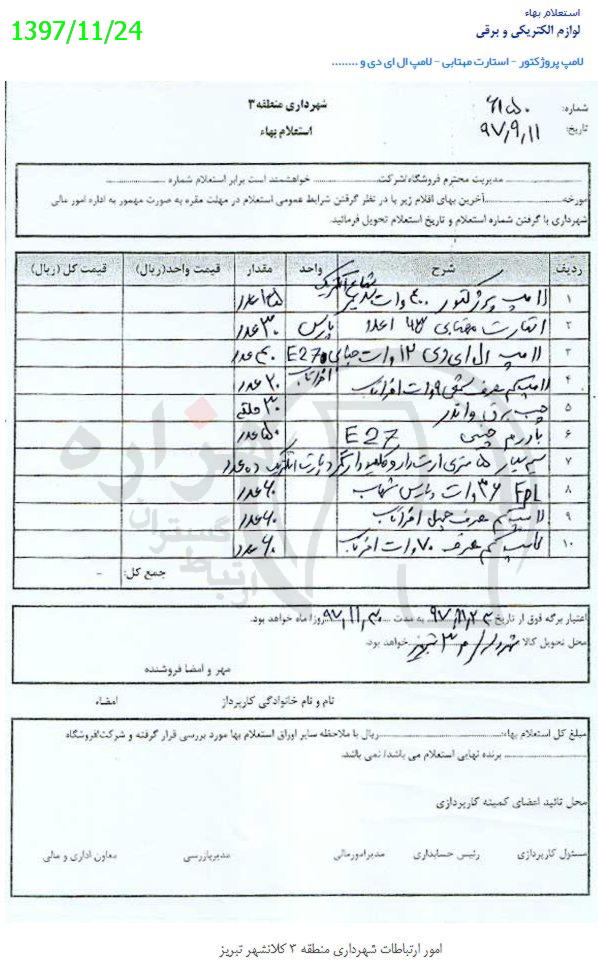 استعلام بهاء
لوازم الکتریکی و برقی
1397/11/24
لامپ پروژکتور - استارت مهتابی - لامپ ال ای دی و ........
شهرداری منطقه ۳
استعلام بهاء
شماره: ۶۱۵۰
تاریخ: ۹۷/۹/۱۱
مدیریت محترم فروشگاه/شرکت خواهشمند است برابر استعلام شماره
مورخه آخرین بهای اقلام زیر با در نظر گرفتن شرایط عمومی استعلام در مهلت مقرره به صورت ممهور به اداره امور مالی
شهرداری با گرفتن شماره استعلام و تاریخ استعلام تحویل فرمائید.
ردیف شرح واحد مقدار قیمت واحد(ریال) قیمت کل (ریال)
۱ لامپ پرژکتور ۴۰۰ وات عدد
۲ مهتابی پارس ۳۰ عدد
۳ لامپ ال ای دی ۱۲ وات حبابی E27 ۴۰ عدد
۴ لامپ کم مصرف شمعی ۹ وات افراتاب ۲۰ عدد
۵ چسب برق ۳۰ حلقه
۶ چینی E27 ۵۰ عدد
۷ سیم سیار ۵ متری ارت دار ده عدد
۸ FPL ۳۶ وات پارس شهاب ۶۰ عدد
۹ لامپ کم مصرف افراتاب ۶۰ عدد
۱۰ لامپ کم مصرف ۷۰ وات افراتاب ۶۰ عدد
جمع کل: -
اعتبار برگه فوق از تاریخ به مدت ۹۷/۱۱/۳۰ روز/ ماه خواهد بود.
محل تحویل کالا شهرداری م ۳ تبریز خواهد بود.
مهر و امضا فروشنده
نام و نام خانوادگی کارپرداز امضاء
مبلغ کل استعلام بهاء: ریال با ملاحظه سایر اوراق استعلام بها مورد بررسی قرار گرفته و شرکت/فروشگاه
برنده نهایی استعلام می باشد/ نمی باشد.
محل تائید اعضای کمیته کارپردازی
مسئول کارپردازی رئیس حسابداری مدیرامورمالی مدیربازرسی معاون اداری و مالی
هزاره
گستران
ارتباط
امور ارتباطات شهرداری منطقه ۳ کلانشهر تبریز